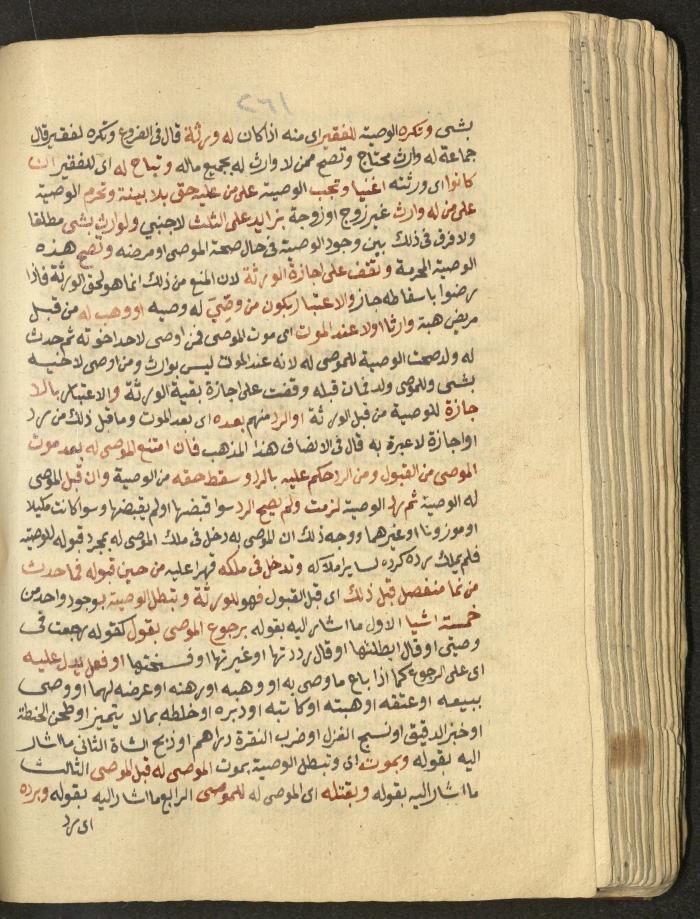 ٢٦١
بشى وتكره الوصية للفقير اى منه اذا كان له ورثة قال فى الفروع وتكره لفقير قال
جماعة له وارث محتاج وتصح ممن لا وارث له بجميع ماله وتباح له اى للفقير ان
كانوا اى ورثته اغنيا وتجب الوصية على من عليه حق بلا بينة وتحرم الوصية
على من له وارث غير زوج او زوجة بزايد على الثلث لاجنبي ولوارث بشى مطلقا
ولا فرق فى ذلك بين وجود الوصية فى حال صحة الموصى او مرضه وتصح هذه
الوصية المحرمة وتقف على اجازة الورثة لان المنع من ذلك انما هو لحق الورثة فاذا
رضوا باسقاطه جاز والاعتبار بكون من وصى له وصية او وهب له من قبل
مريض هبة وارثا اولا عند الموت اى موت الموصى فمن اوصى لاحد اخوته ثم حدث
له ولد صحت الوصية للموصى له لانه عند الموت ليس بوارث ومن اوصى لاخيه
بشى وللموصى ولد فمات قبله وقفت على اجازة بقية الورثة والاعتبار بالا
جازة للوصية من قبل الورثة او الرد منهم بعده اى بعد الموت وما قبل ذلك من رد
او اجازة لا عبرة به قال فى الانصاف هذا المذهب فان امتنع الموصى له بعد موت
الموصى من القبول ومن الرد حكم عليه بالرد وسقط حقه من الوصية وان قبل الموصى
له الوصية ثم رد الوصية لزمت ولم يصح الرد سوا قبضها او لم يقبضها وسوا كانت مكيلا
او موزونا او غيرهما ووجه ذلك ان الموصى به دخل فى ملك الموصى له بمجرد قبوله للوصية
فلم يملك رده كرده لساير املاكه وتدخل فى ملكه قهرا عليه من حين قبوله فما حدث
من نما منفصل قبل ذلك اى قبل القبول فهو للورثة وتبطل الوصية بوجود واحد من
خمسة اشيا الاول ما اشار اليه بقوله برجوع الموصى بقول كقوله رجعت فى
وصيتى او قال ابطلتها او قال رددتها او غيرتها او فسختها او فعل يدل عليه
اى على الرجوع كما اذا باع ما وصى به او وهبه او رهنه او عرضه لهما او وصى
ببيعه او عتقه او هبته او كاتبه او دبره او خلطه بما لا يتميز او طحن الحنطة
او خبز الدقيق او نسج الغزل او ضرب النقرة دراهم او ذبح الشاة الثانى ما اشار
اليه بقوله وبموت اى وتبطل الوصية بموت الموصى له قبل الموصى الثالث
ما اشار اليه بقوله وبقتله اى الموصى له للموصى الرابع ما اشار اليه بقوله وبرده
اى رد